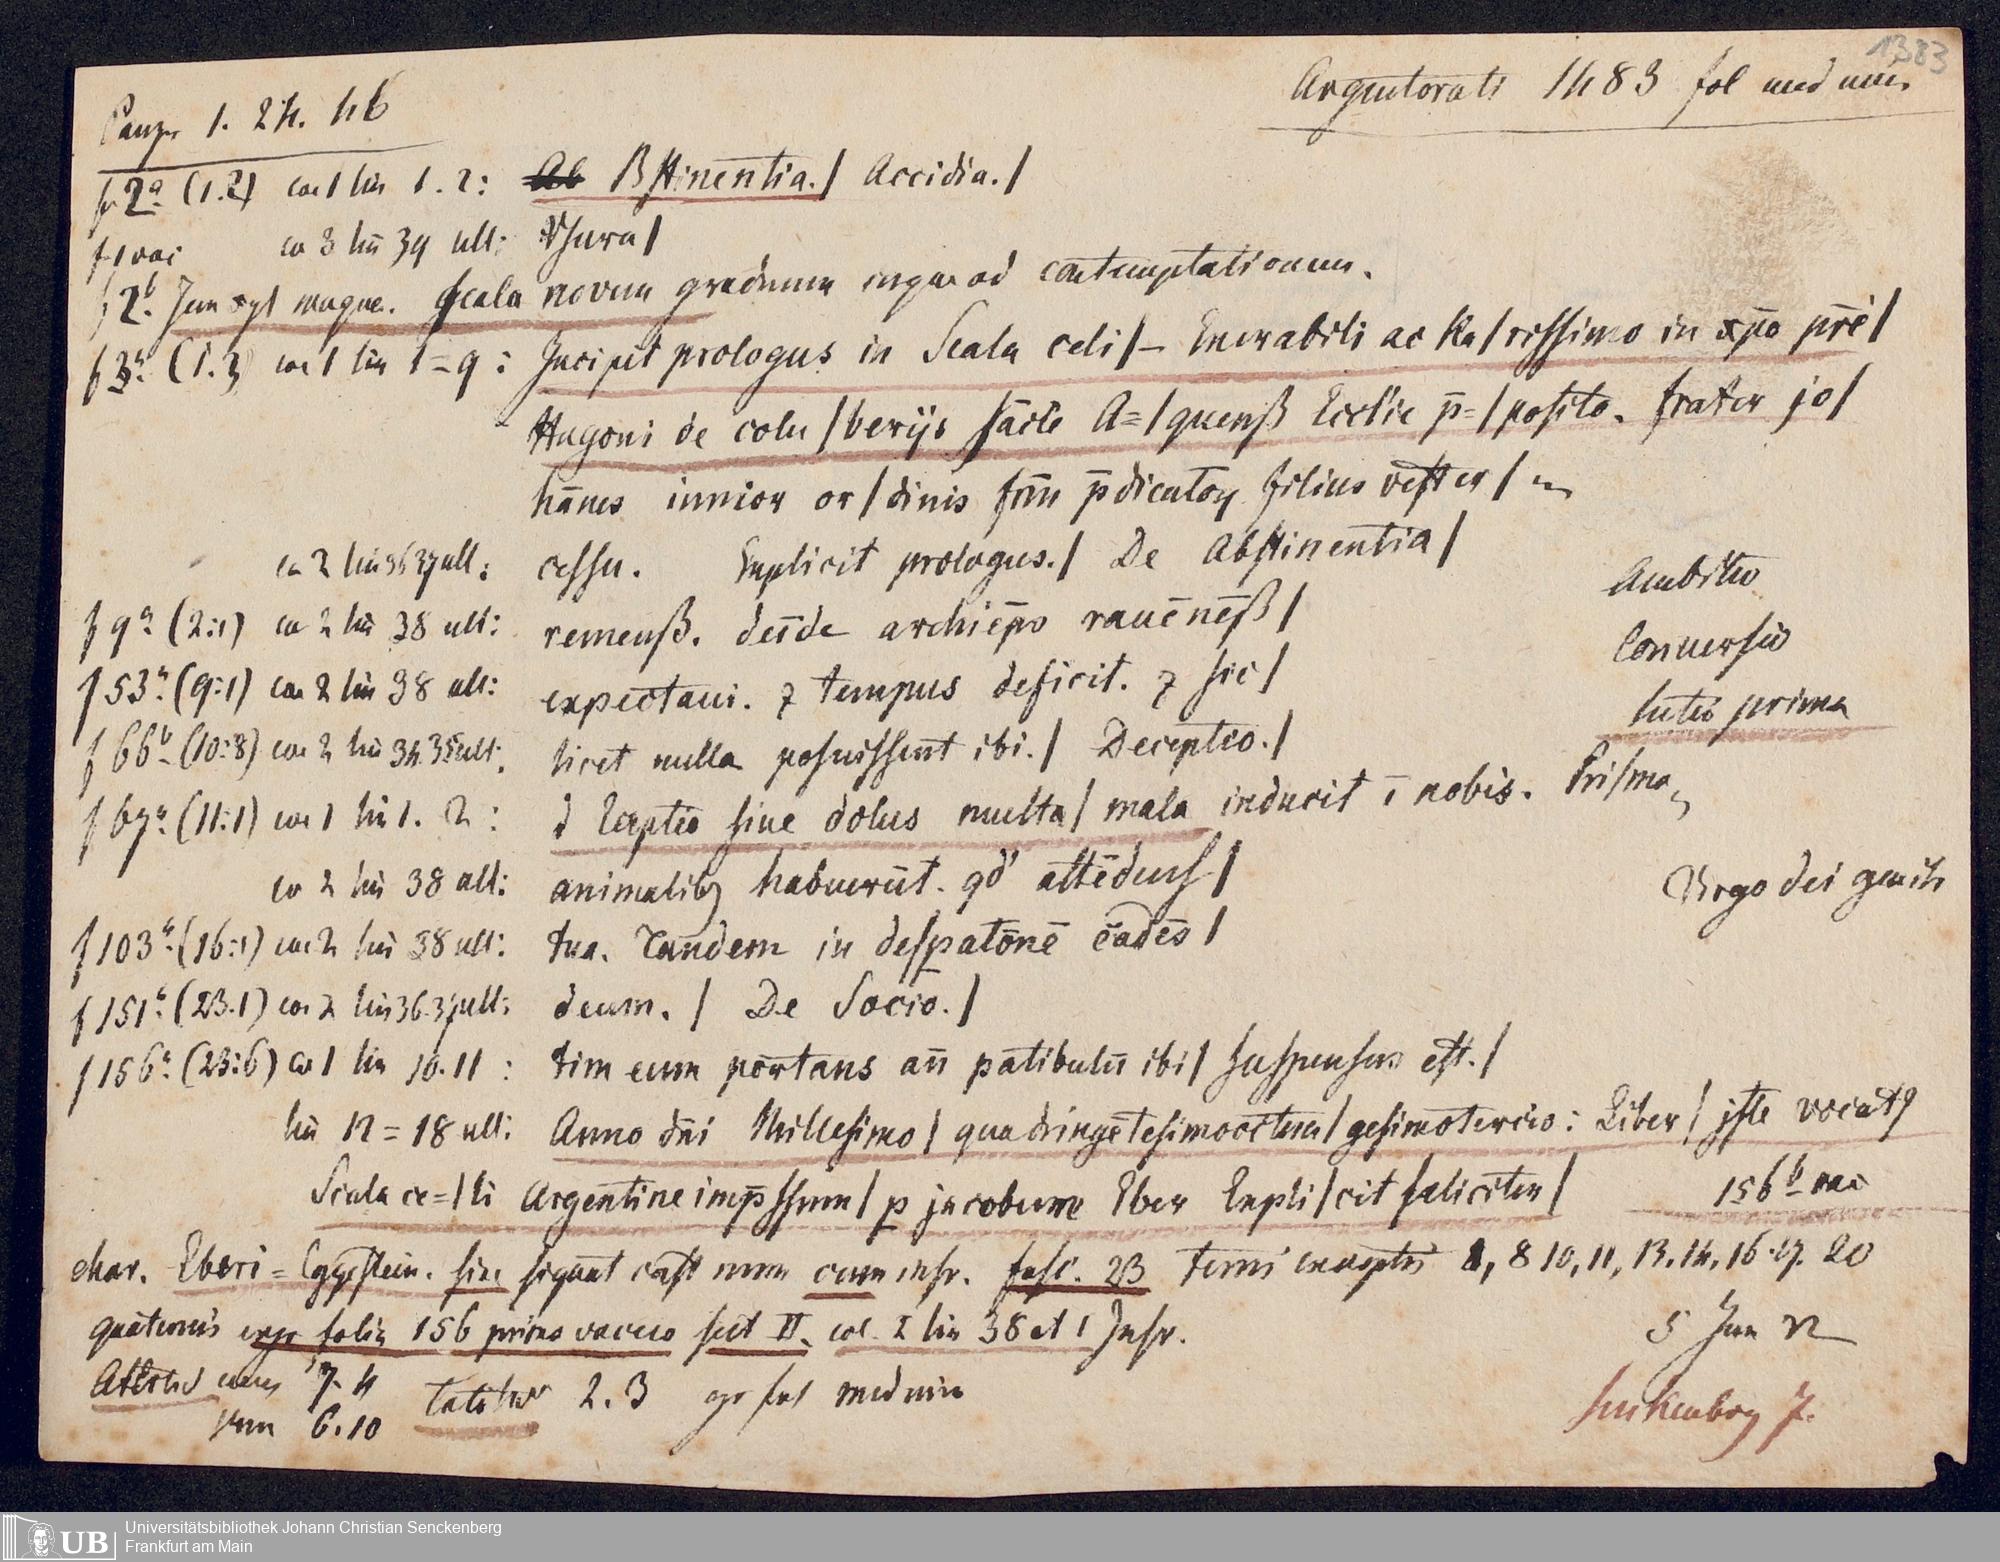 1383
Panzer 1. 24. 46
Argentorati 1483 fol med min
f 2ª (1.2) col 1 lin 1. 2: Ab BStinentia./ Accidia./
f 1 vac co 3 lin 39 ult: Vsura/
f 2b. magne. Scala novem graduum ad contemptationem.
f 3ª (1.3) col 1 lin 1=9: Incipit prologus in Scala celi/– Enerabili ac Ka/rissimo in xp̄o pr̄e/
Hugoni de colu/berijs sāctē A=/quenß Eccl'ie p̄=/posito. frater jo/
hānes iunior or/dinis frm̄ p̄dicatoꝝ filius vester/ in
co 2 lin 36 37 ult: cessu. Explicit prologus./ De Abstinentia/
f 9ª (2:1) co 2 lin 38 ult: remenß. deīde archiēp̄o rauēnēß/
Ambitio
f 53ª (9:1) col 2 lin 38 ult: expectaui. ⁊ tempus deficit. ⁊ sic/
Conuersio
f 66b (10:8) col 2 lin 34 35 ult: licet nulla posuissent ibi./ Deceptio./
prima
f 67ª (11:1) col 1 lin 1. 2: d Eceptio siue dolus multa/ mala inducit ī nobis. Primo
co 2 lin 38 ult: animalibꝫ habuerūt. qd' attēdens/
Virgo dei
f 103ª (16:1) col 2 lin 38 ult: tua. Tandem in despatōnē cadēs/
f 151ª (23.1) col 2 lin 36.37 ult: deum./ De Socio./
f 156ª (23:6) co 1 lin 10.11: tim eum portans añ patibulū ibi/ suspensus est./
lin 12=18 ult: Anno dn̄i Millesimo/ quadringētesimooctua/gesimotercio: Liber/ iste vocatꝰ
Scala ce=/li Argentine imp̄ssum/ p jacobum Eber Expli/cit feliciter/ 156b vac
char. Eberi = Eggestein. sine signat cust num cum inscr. fasc. 23 terni exceptis 1, 8 10, 11, 13. 14. 16. 17. 20
quaternis folia 156 primo vacuo sect II. col. I lin 38 et 1 Inscr.
5 Jun 12
7. 4 2. 3 fol med min
6. 10
Senckenberg 7.
Universitätsbibliothek Johann Christian Senckenberg
UB
Frankfurt am Main